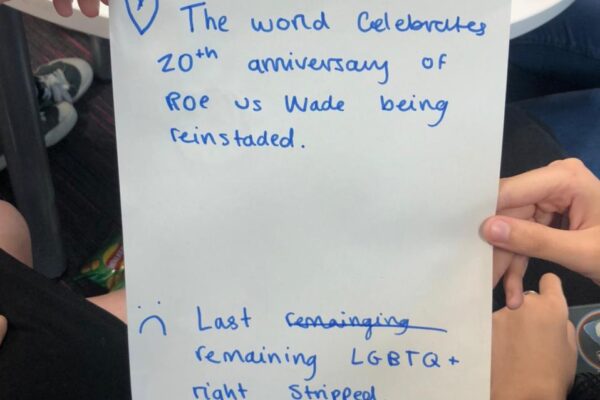 The world Celebrates
20th anniversary of
Roe vs Wade being
reinstaded.
Last remainging
remaining LGBTQ+
right stripped